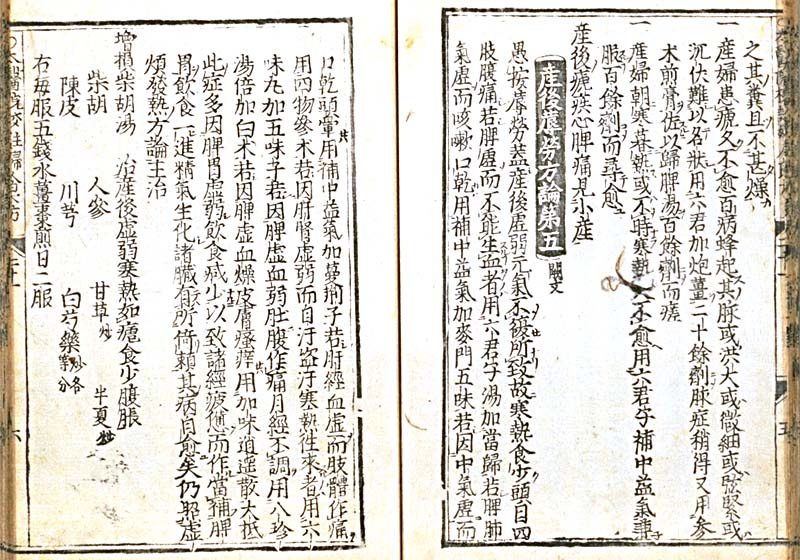 之其糞且不甚燥
一 産婦患瘧久不愈百病蜂起其脉或洪大或微細或弦緊或
沉伏難以名狀用六君加炮薑二十餘劑脉症稍得又用參
术煎膏佐以歸脾湯百餘劑而瘥
一 産婦朝寒暮熱或不時寒熱久不愈用六君子補中益氣兼
服百餘劑而尋愈
産後瘧疾心脾痛見小産
産後蓐勞方論第五 闕文
愚按蓐勞蓋産後虛弱元氣不復所致故寒熱食少頭目四
肢腹痛若脾虛而不能生血者用六君子湯加當歸若脾肺
氣虛而咳嗽口乾用補中益氣加麥門五味若因中氣虛而
口乾頭暈用補中益氣加蔓荊子若肝經血虛而肢體作痛
用四物參术若因肝腎虛弱而自汗盗汗寒熱往來者用六
味丸加五味子若因脾虛血弱肚腹作痛月經不調用八珍
湯倍加白术若因脾虛血燥皮膚瘙痒用加味逍遥散大抵
此症多因脾胃虛弱飲食减少以致諸經疲憊而作當補脾
胃飲食一進精氣生化諸臟有所倚賴其病自愈矣仍與虛
煩發熱方論主治
增損柴胡湯 治産後虛弱寒熱如瘧食少腹脹
柴胡 人參 甘草炒 半夏炒
陳皮 川芎 白芍藥炒各等分
右每服五錢水薑棗煎日二服
六